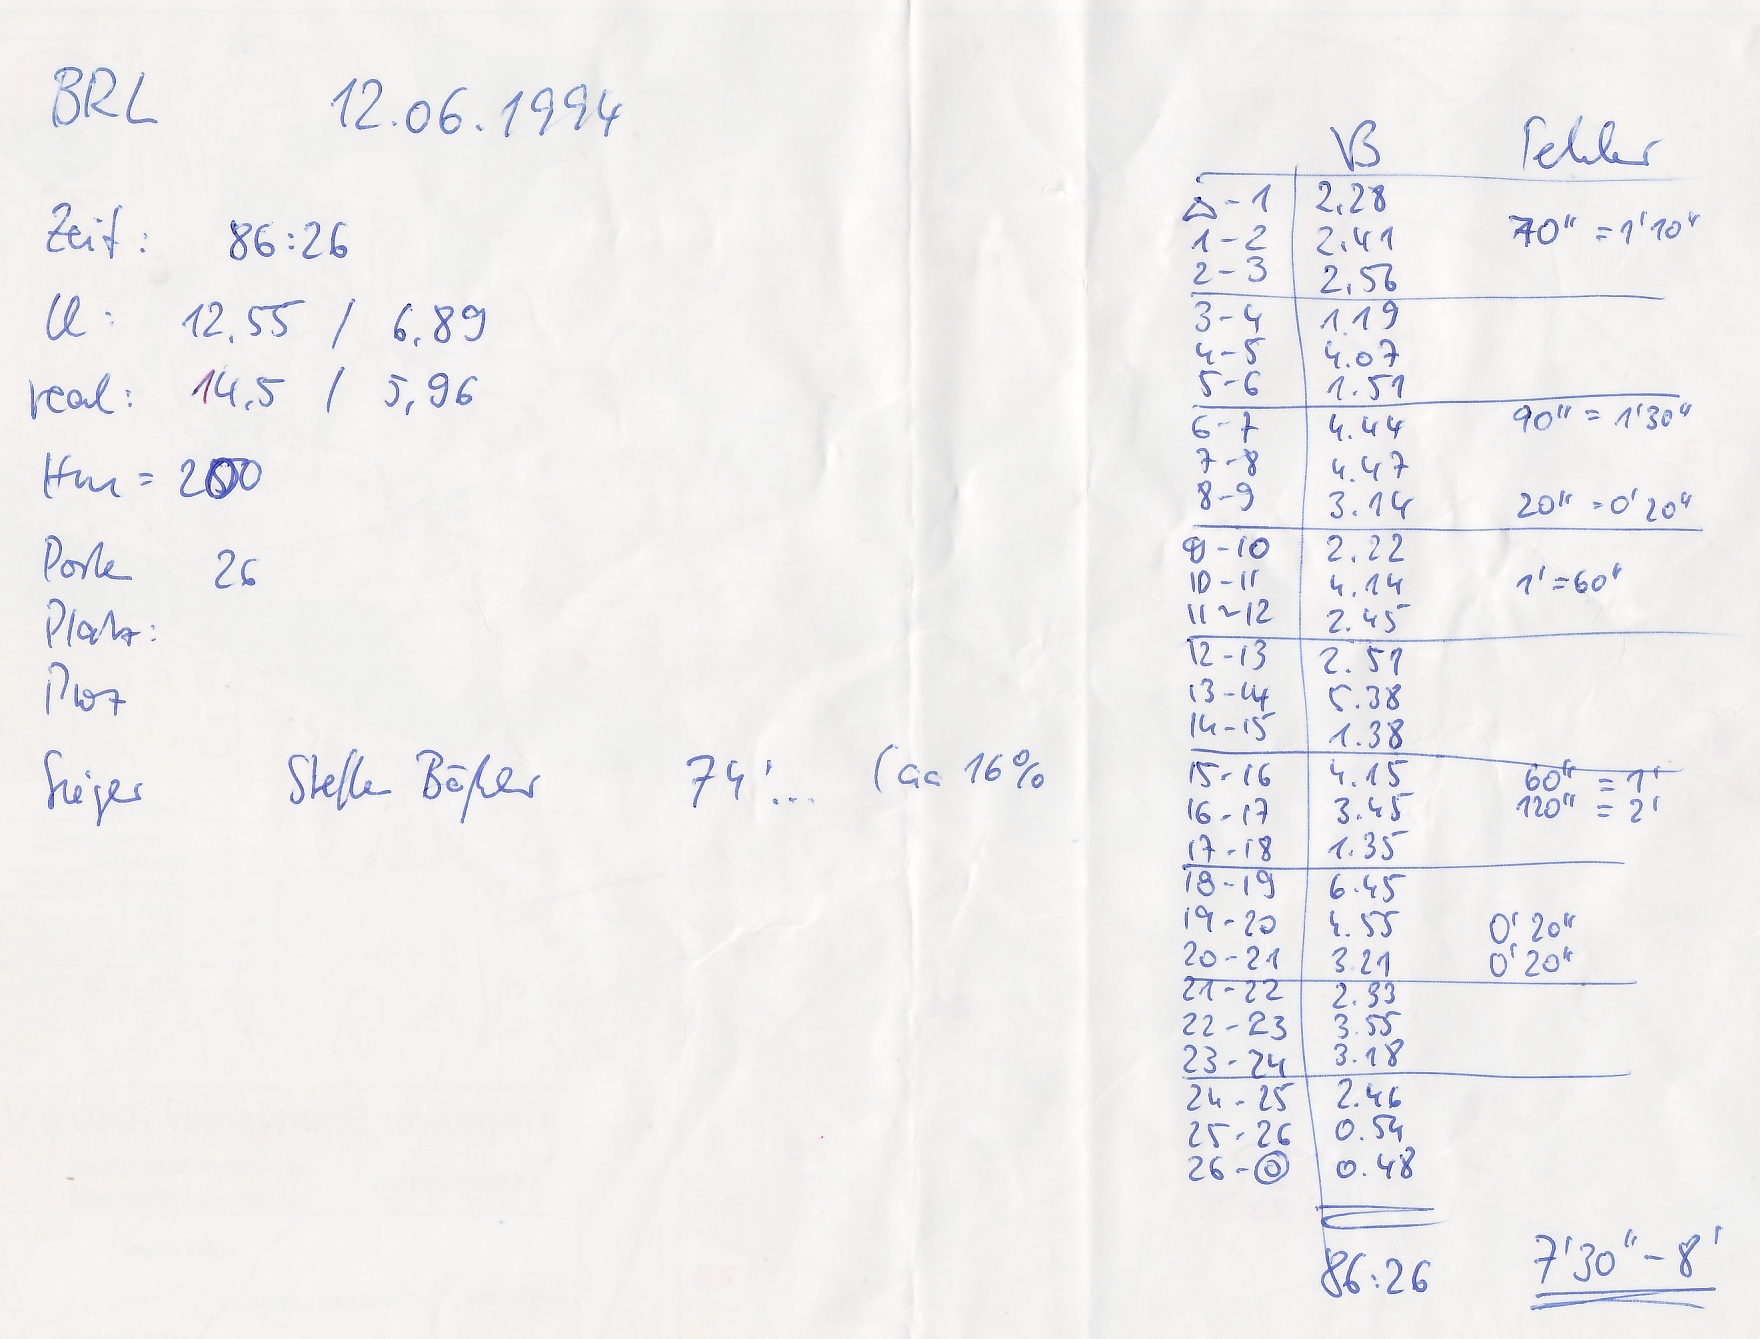 BRL 12.06.1994
Zeit: 86:26
12,55 / 6,89
real: 14,5 / 5,96
Hm = 200
Poste 26
Platz:
Proz
Sieger 74'... (ca 16%
VB Fehler
△-1 2.28
1-2 2.41 70" = 1'10"
2-3 2.56
3-4 1.19
4-5 4.07
5-6 1.51
6-7 4.44 90" = 1'30"
7-8 4.47
8-9 3.14 20" = 0'20"
9-10 2.22
10-11 4.14 1' = 60"
11-12 2.45
12-13 2.51
13-14 5.38
14-15 1.38
15-16 4.15 60" = 1'
16-17 3.45 120" = 2'
17-18 1.35
18-19 6.45
19-20 4.55 0'20"
20-21 3.21 0'20"
21-22 2.33
22-23 3.55
23-24 3.18
24-25 2.46
25-26 0.54
26-◎ 0.48
86:26 7'30" - 8'